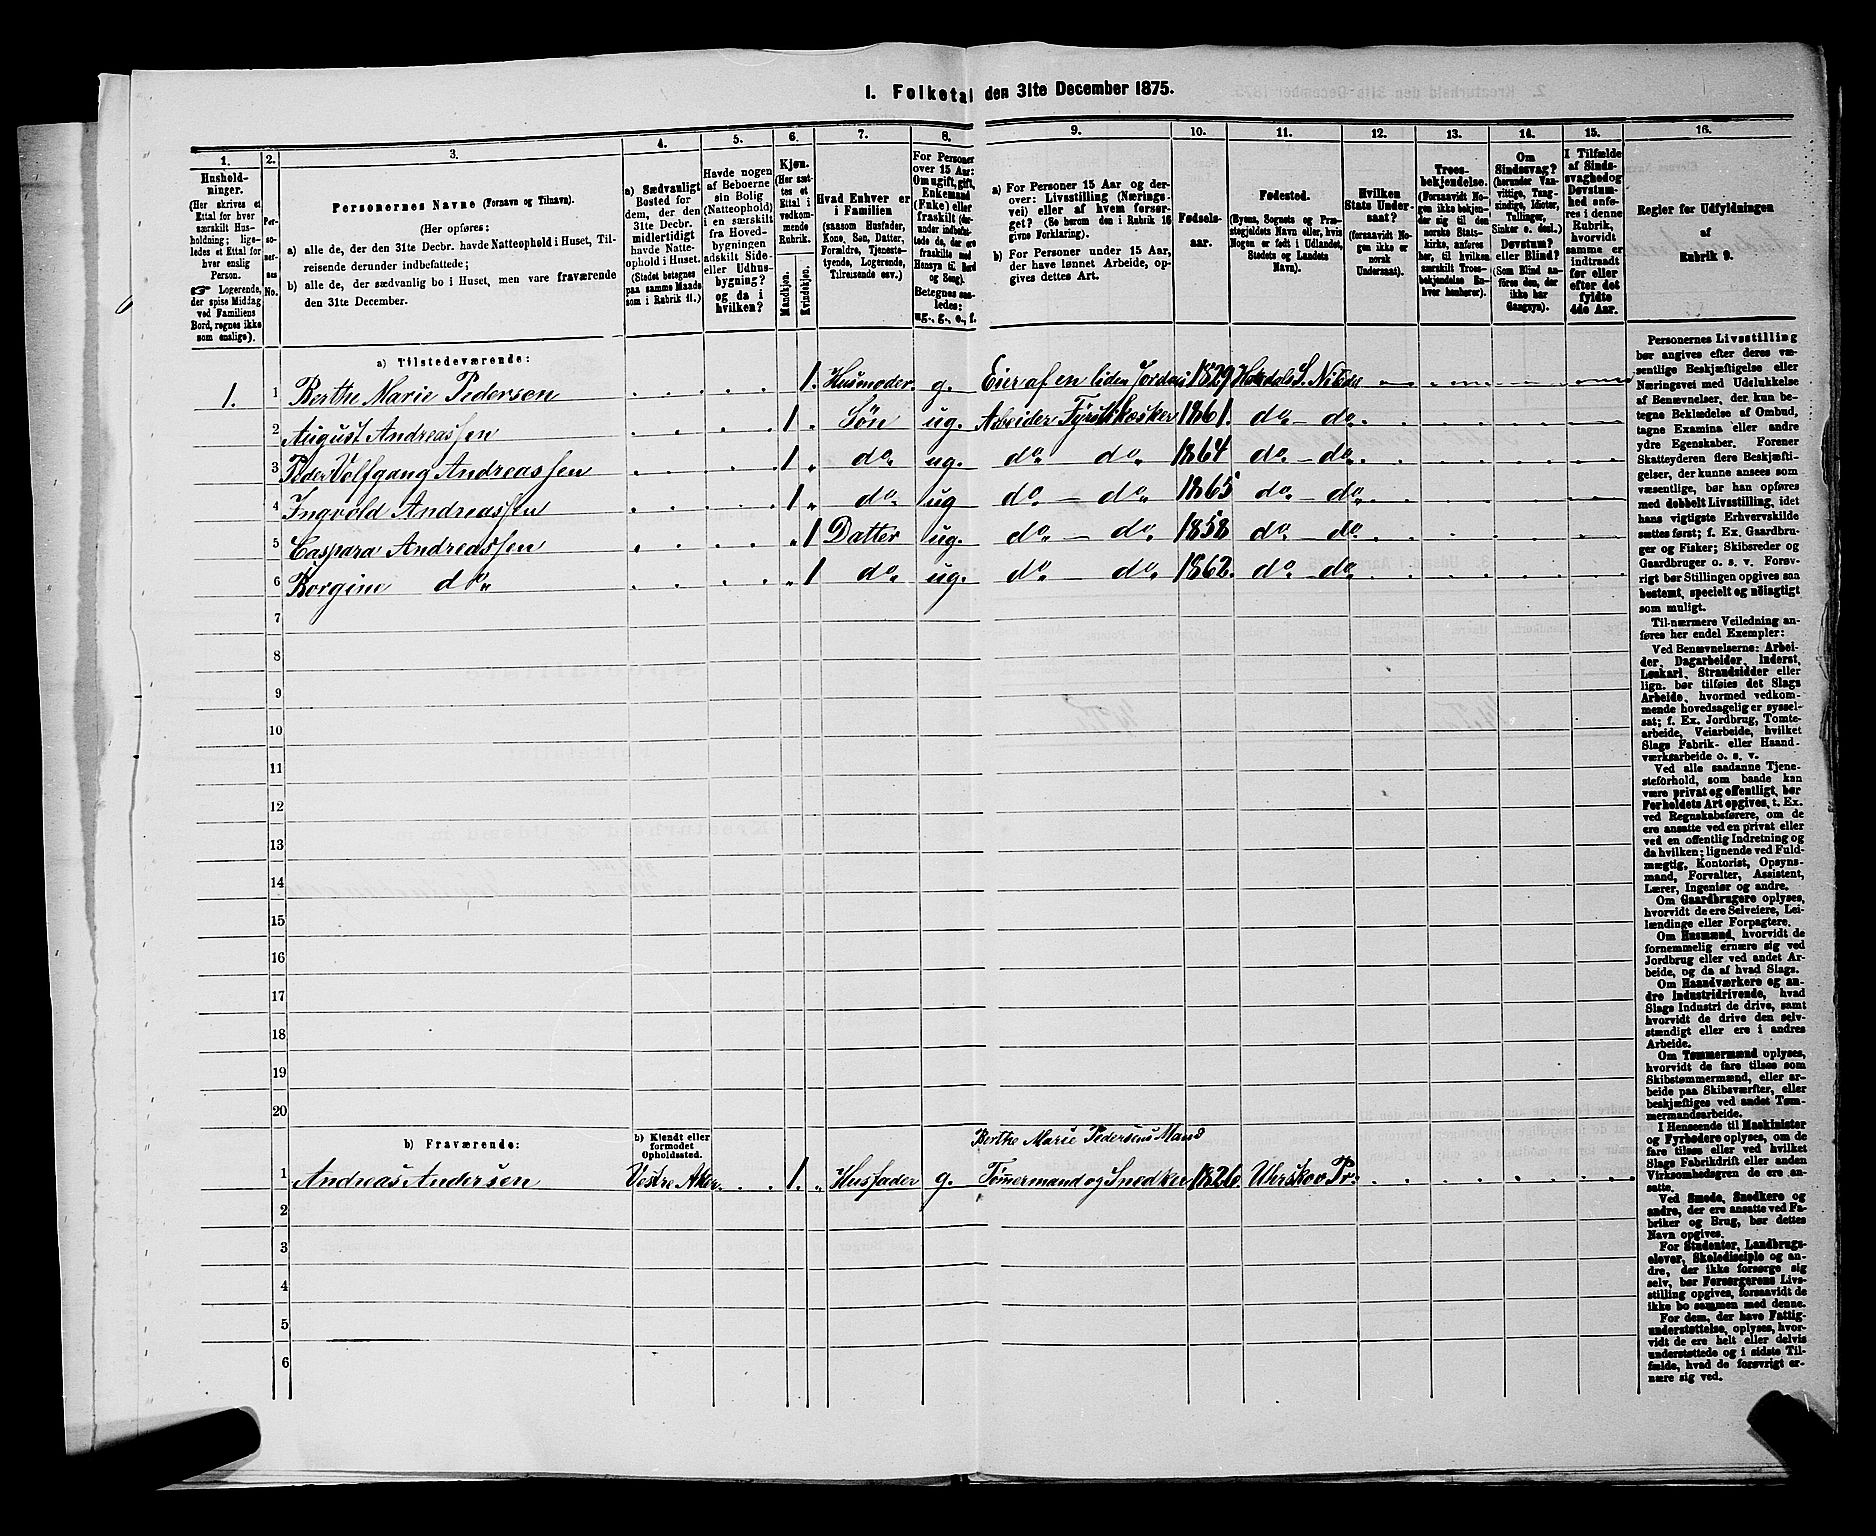 1. Folketal den 31te December 1875.
1. 2. 3. 4. 5. 6. 7. 8. 9. 10. 11. 12. 13. 14. 15. 16.
Hushold-
ninger.
(Her skrives et
Ettal for hver
særskilt Hus-
holdning; lige-
ledes et Ettal for
hver enslig
Person.
☞ Logerende,
der spise Middag
ved Familiens
Bord, regnes ikke
som enslige).
Per-
so-
ner-
nes
No.
Personernes Navne (Fornavn og Tilnavn).
(Her opføres:
a) alle de, der den 31te Decbr. havde Natteophold i Huset, Til-
reisende derunder indbefattede;
b) alle de, der sædvanlig bo i Huset, men vare fraværende
den 31te December.
a) Sædvanligt
Bosted for
dem, der den
31te Decbr.
midlertidigt
havde Natte-
ophold i Huset.
(Stedet betegnes
paa samme Maade
som i Rubrik 11.)
Havde nogen
af Beboerne
sin Bolig
(Natteophold)
i en særskilt
fra Hoved-
bygningen
adskilt Side-
eller Udhus-
bygning?
og da i
hvilken?
Kjøn.
(Her sæt-
tes et
Ettal i
vedkom-
mende
Rubrik.
Mandkjøn.
Kvindekjøn.
Hvad Enhver er
i Familien
(saasom Husfader,
Kone, Søn, Datter,
Forældre, Tjeneste-
tyende, Logerende,
Tilreisende osv.)
For Personer
over 15 Aar:
Om ugift, gift,
Enkemand
(Enke) eller
fraskilt (der-
under indbefat-
tede de, der ere
fraskilte med
Hensyn til Bord
og Seng).
Betegnes saa-
ledes:
ug., g., e., f.
a) For Personer 15 Aar og der-
over: Livsstilling (Nærings-
vei) eller af hvem forsør-
get? (Se herom den i Rubrik 16
givne Forklaring).
b) For Personer under 15 Aar,
der have lønnet Arbeide, op-
gives dettes Art.
Fødsels-
aar.
Fødested.
(Byens, Sognets og Præ-
stegjeldets Navn eller, hvis
Nogen er født i Udlandet,
Stedets og Landets
Navn).
Hvilken
Stats Under-
saat?
(forsaavidt No-
gen ikke er
norsk
Undersaat).
Troes-
bekjendelse.
(Forsaavidt No-
gen ikke bekjen-
der sig til den
norske Stats-
kirke, anføres
her, til hvilken
særskilt Troes-
bekjendelse En-
hver henhører).
Om
Sindssvag?
(herunder Van-
vittige, Tung-
sindige, Idioter,
Tullinger,
Sinker o. desl.)
Døvstum?
eller Blind?
(Som Blind an-
føres den, der
ikke har
Gangsyn).
I Tilfælde
af Sinds-
svaghed og
Døvstum-
hed anfø-
res i denne
Rubrik,
hvorvidt
samme er
indtraadt
før eller
efter det
fyldte
4de Aar.
Regler for Udfyldningen
af
Rubrik 9.
a) Tilstedeværende:
1. 1 Berthe Marie Pedersen 1. Husmoder g. Eier af en liden Jordei 1829 Hakdals S. Nitedal
2 August Andreassen 1 Søn ug. Arbeider Fyrstikæsker 1861. do. do.
3 Peder Volfgang Andreassen 1 do. ug. do. do. 1864 do. do.
4 Ingvold Andreassen 1 do. ug do. do. 1865 do. do.
5 Caspara Andreassen 1 Datter ug. do. do. 1858 do. do.
6 Borgine do. 1 do. ug. do. do. 1862. do. do.
7
8
9
10
11
12
13
14
15
16
17
18
19
20
b) Fraværende:
b) Kjendt eller
formodet
Opholdssted.
Berthe Marie Pedersens Mand
1 Andreas Andersen Vestre Aker 1. Husfader g. Tømermand og Snedker 1826. Uhrskov Pr.
2
3
4
5
6
Personernes Livsstilling
bør angives efter deres væ-
sentlige Beskjæftigelse eller
Næringsvei med Udelukkelse
af Benævnelser, der kun be-
tegne Beklædelse af Ombud,
tagne Examina eller andre
ydre Egenskaber. Forener
Skatteyderen flere Beskjæfti-
gelser, der kunne ansees som
væsentlige, bør han opføres
med dobbelt Livsstilling, idet
hans vigtigste Erhvervskilde
sættes først; f. Ex. Gaardbru-
ger og Fisker; Skibsreder og
Gaardbruger o. s. v. Forøv-
rigt bør Stillingen opgives saa
bestemt, specielt og nøiagtigt
som muligt.
Til nærmere Veiledning an-
føres her endel Exempler:
Ved Benævnelserne: Arbei-
der, Dagarbeider, Inderst,
Løskarl, Strandsidder eller
lign. bør tilføies det Slags
Arbeide, hvormed vedkom-
mende hovedsagelig er syssel-
sat; f. Ex. Jordbrug, Tomte-
arbeide, Veiarbeide, hvilket
Slags Fabrik- eller Haand-
værksarbeide o. s. v.
Ved alle saadanne Tjene-
steforhold, som baade kan
være privat og offentligt, bør
Forholdets Art opgives, t. Ex.
ved Regnskabsførere, om de
ere ansatte ved en privat eller
ved en offentlig Indretning og
da hvilken; lignende ved Fuld-
mægtig, Kontorist, Opsyns-
mand, Forvalter, Assistent,
Lærer, Ingeniør og andre.
Om Gaardbrugere oplyses,
hvorvidt de ere Selveiere, Lei-
lændinge eller Forpagtere.
Om Husmænd, hvorvidt de
fornemmelig ernære sig ved
Jordbrug eller ved andet Ar-
beide, og da af hvad Slags.
Om Haandværkere og an-
dre Industridrivende, hvad
Slags Industri de drive, samt
hvorvidt de drive den selv-
stændigt eller ere i andres
Arbeide.
Om Tømmermænd oplyses,
hvorvidt de fare tilsøs som
Skibstømmermænd, eller ar-
beide paa Skibsværfter, eller
beskjæftiges ved andet Tøm-
mermandsarbeide.
I Henseende til Maskinister
og Fyrbødere oplyses, om de
fare tilsøs eller ved hvilket
Slags Fabrikdrift eller anden
Virksomhedsgren de ere an-
satte.
Ved Smede, Snedkere og
andre, der ere ansatte ved Fa-
briker og Brug, bør dettes
Navn opgives.
For Studenter, Landbrugs-
elever, Skoledisciple og an-
dre, der ikke forsørge sig
selv, bør Forsørgerens Livs-
stilling opgives, forsaavidt de
ikke bo sammen med denne.
For dem, der have Fattig-
understøttelse, oplyses, hvor-
vidt de ere helt eller delvis
understøttede og i sidste Til-
fælde, hvad de forøvrigt er-
nære sig ved.